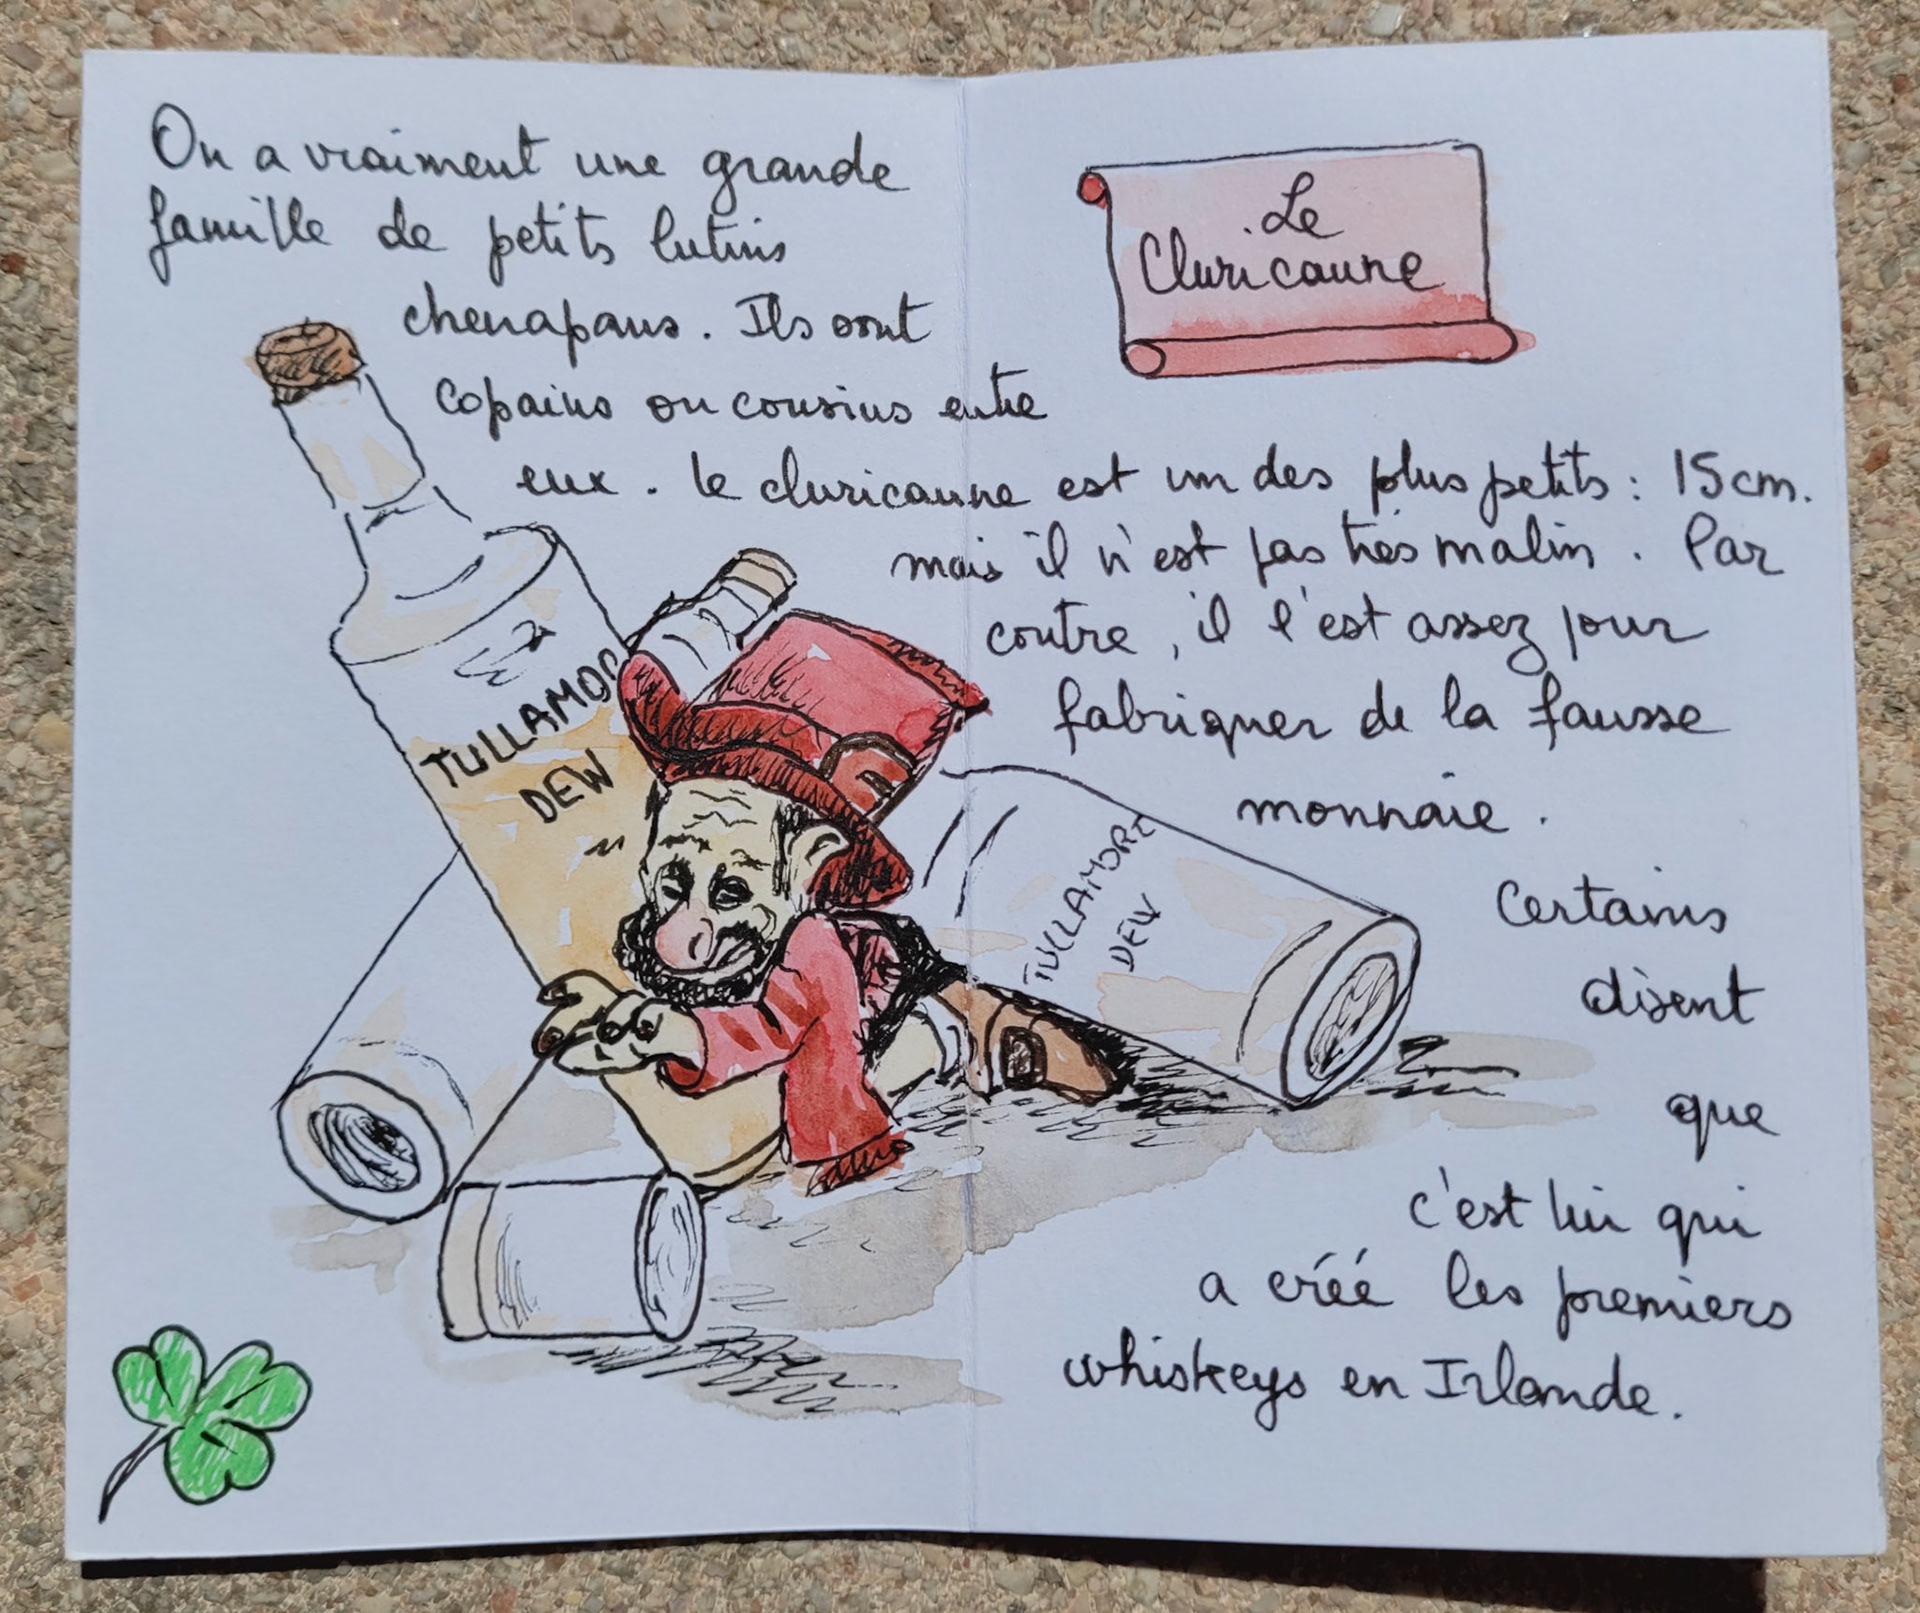 On a vraiment une grande
famille de petits lutins
chenapans. Ils sont
copains ou cousins entre
eux. Le cluricaune est un des plus petits : 15 cm.
mais il n'est pas très malin. Par
contre, il l'est assez pour
fabriquer de la fausse
monnaie.
Certains
disent
que
c'est lui qui
a créé les premiers
whiskeys en Irlande.
Le
Cluricaune
TULLAMOR
DEW
TULLAMORE
DEW